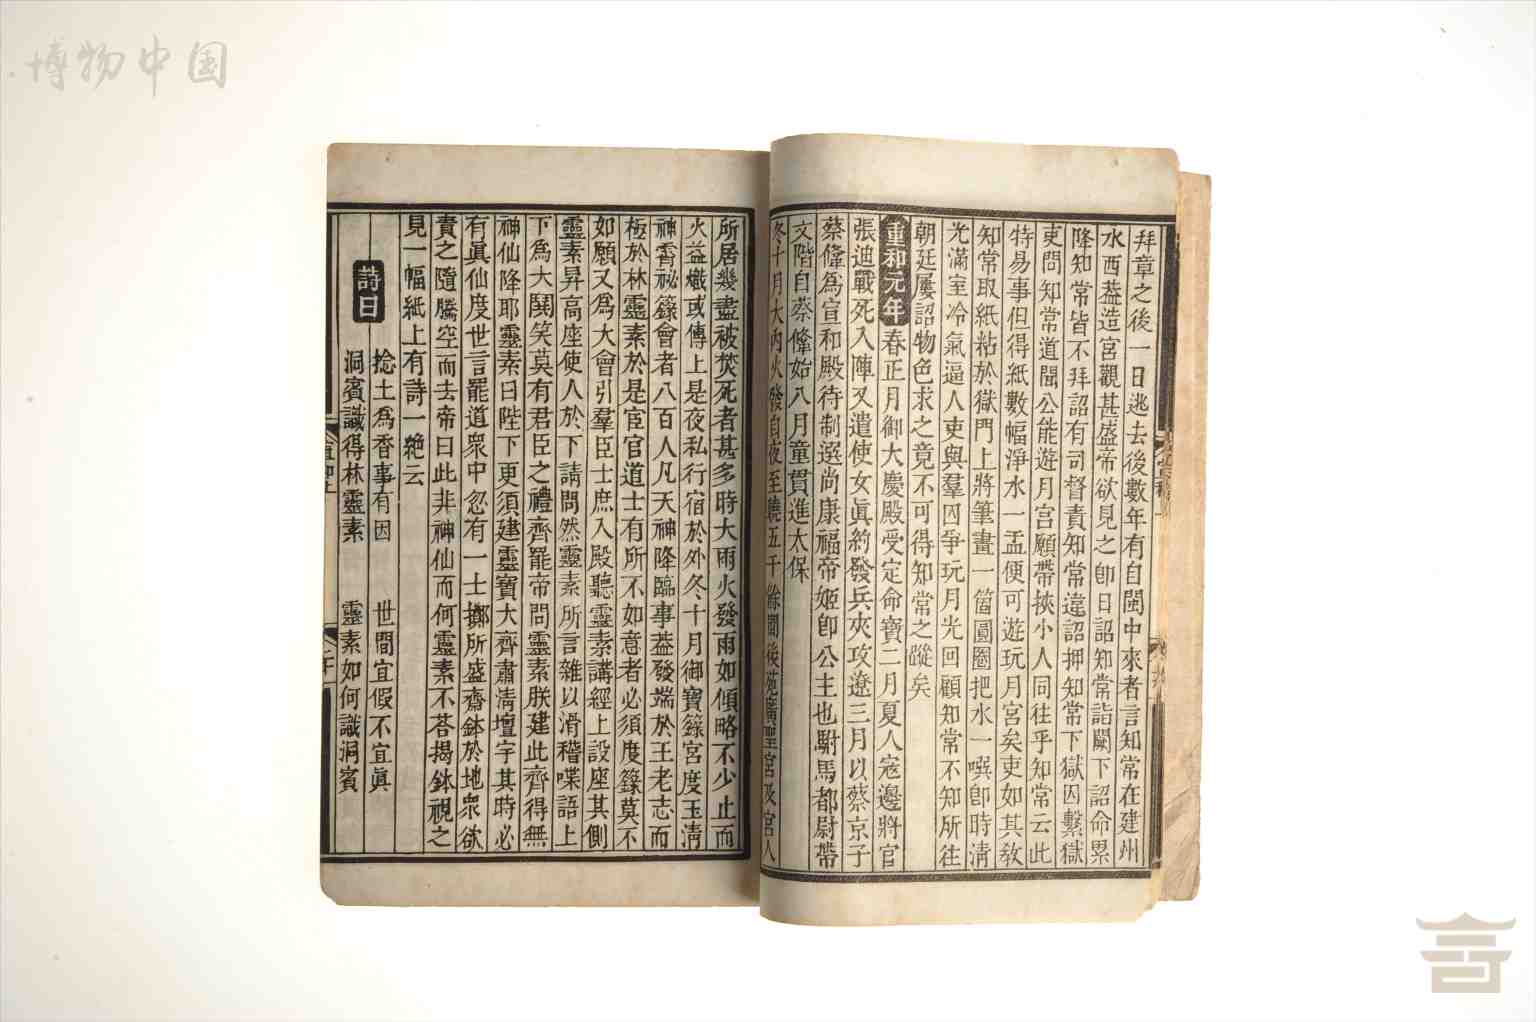 博物中国
拜章之後一日逃去後數年有自閩中來者言知常在建州
水西葢造宮觀甚盛帝欲見之卽日詔知常詣闕下詔命累
降知常皆不拜詔有司督責知常違詔押知常下獄囚繫獄
吏問知常道聞公能遊月宮願帶挾小人同往乎知常云此
特易事但得紙數幅淨水一盂便可遊玩月宮矣吏如其敎
知常取紙粘於獄門上將筆畫一箇圓圈把水一噀卽時淸
光滿室冷氣逼人吏與羣囚爭玩月光回顧知常不知所往
朝廷屢詔物色求之竟不可得知常之蹤矣
重和元年春正月御大慶殿受定命寶二月夏人宼邊將官
張迪戰死入陣又遣使女眞約發兵夾攻遼三月以蔡京子
蔡鞗爲宣和殿待制選尚康福帝姬卽公主也駙馬都尉帶
文階自蔡鞗始八月童貫進太保
冬十月大內火發自夜至曉五千餘閒後苑廣聖宮及宮人
所居幾盡被焚死者甚多時大雨火發雨如傾略不少止而
火益熾或傳上是夜私行宿於外冬十月御寶籙宮度玉淸
神霄祕籙會者八百人凡天神降臨事葢發端於王老志而
極於林靈素於是宦官道士有所不如意者必須度籙莫不
如願又爲大會引羣臣士庶入殿聽靈素講經上設座其側
靈素昇高座使人於下請問然靈素所言雜以滑稽喋語上
下爲大鬨笑莫有君臣之禮齊罷帝問靈素朕建此齊得無
神仙降耶靈素曰陛下更須建靈寶大齊肅淸壇宇其時必
有眞仙度世言罷道衆中忽有一士擲所盛齋鉢於地衆欲
責之隨騰空而去帝曰此非神仙而何靈素不荅揭鉢視之
見一幅紙上有詩一絶云
詩曰
捻土爲香事有因 世間宜假不宜眞
洞賓識得林靈素 靈素如何識洞賓